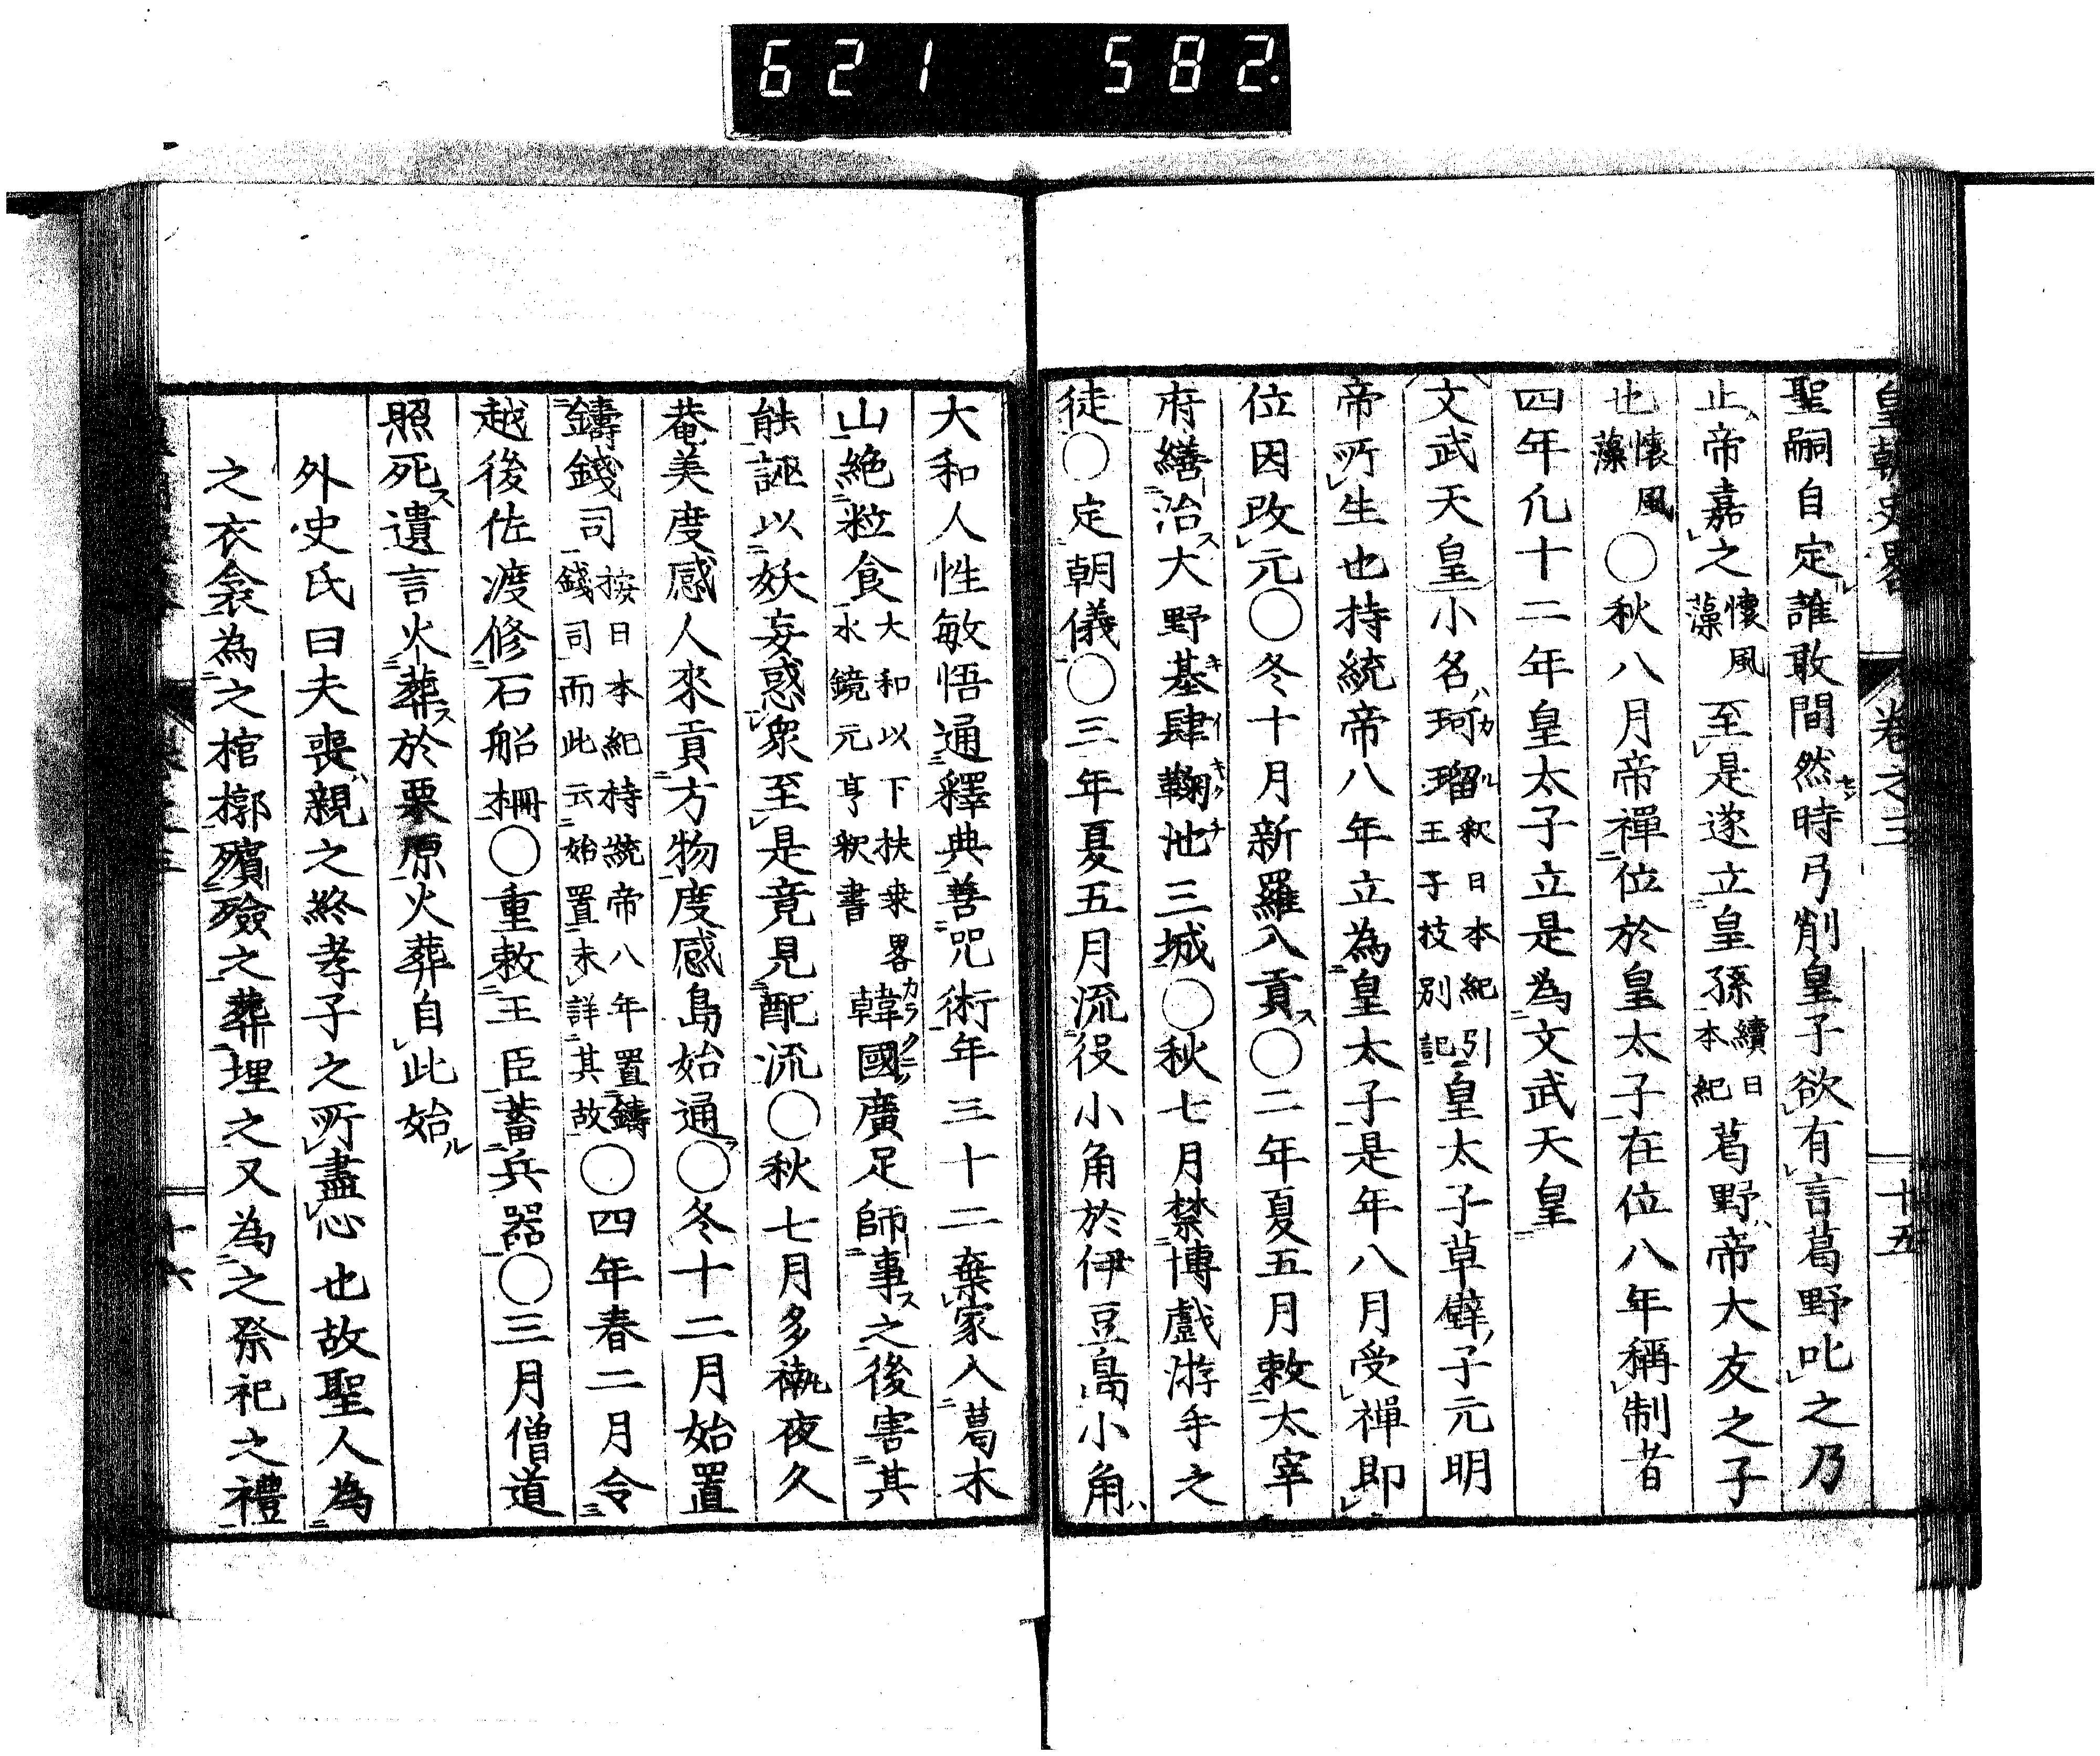 621 582.
皇朝史畧 卷之三 十五
聖嗣自定誰敢間然時弓削皇子欲有言葛野叱之乃
止帝嘉之懷風藻至是遂立皇孫續日本紀葛野帝大友之子
也懷風藻〇秋八月帝禪位於皇太子在位八年稱制者
四年凡十二年皇太子立是為文武天皇
文武天皇小名珂瑠釈日本紀引王子技別記皇太子草壁子元明
帝所生也持統帝八年立為皇太子是年八月受禪即
位因改元〇冬十月新羅入貢〇二年夏五月敕太宰
府繕治大野基肆鞠池三城〇秋七月禁博戲游手之
徒〇定朝儀〇三年夏五月流役小角於伊豆島小角
大和人性敏悟通釋典善咒術年三十二棄家入葛木
山絶粒食大和以下扶桒畧水鏡元亨釈書韓國廣足師事之後害其
能誣以妖妄惑衆至是竟見配流〇秋七月多褹夜久
菴美度感人來貢方物度感島始通〇冬十二月始置
鑄錢司按日本紀持統帝八年置鑄錢司而此云始置未詳其故〇四年春二月令
越後佐渡修石船柵〇重敕王臣蓄兵器〇三月僧道
照死遺言火葬於栗原火葬自此始
外史氏曰夫喪親之終孝子之所盡心也故聖人為
之衣衾為之棺槨殯殮之葬埋之又為之祭祀之禮
十六